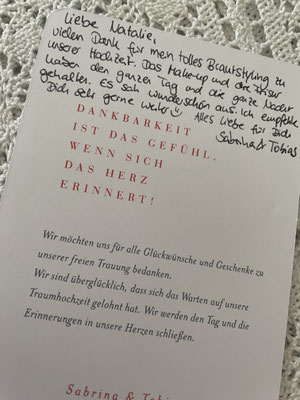 Liebe Natalie,
vielen Dank für mein tolles Brautstyling zu
unserer Hochzeit. Das Make-up und die Frisur
haben den ganzen Tag und die ganze Nacht
gehalten. Es sah wunderschön aus. Ich empfehle
Dich sehr gerne weiter :) Alles Liebe für Dich
Sabrina & Tobias
DANKBARKEIT
IST DAS GEFÜHL,
WENN SICH
DAS HERZ
ERINNERT!
Wir möchten uns für alle Glückwünsche und Geschenke zu
unserer freien Trauung bedanken.
Wir sind überglücklich, dass sich das Warten auf unsere
Traumhochzeit gelohnt hat. Wir werden den Tag und die
Erinnerungen in unsere Herzen schließen.
Sabrina &